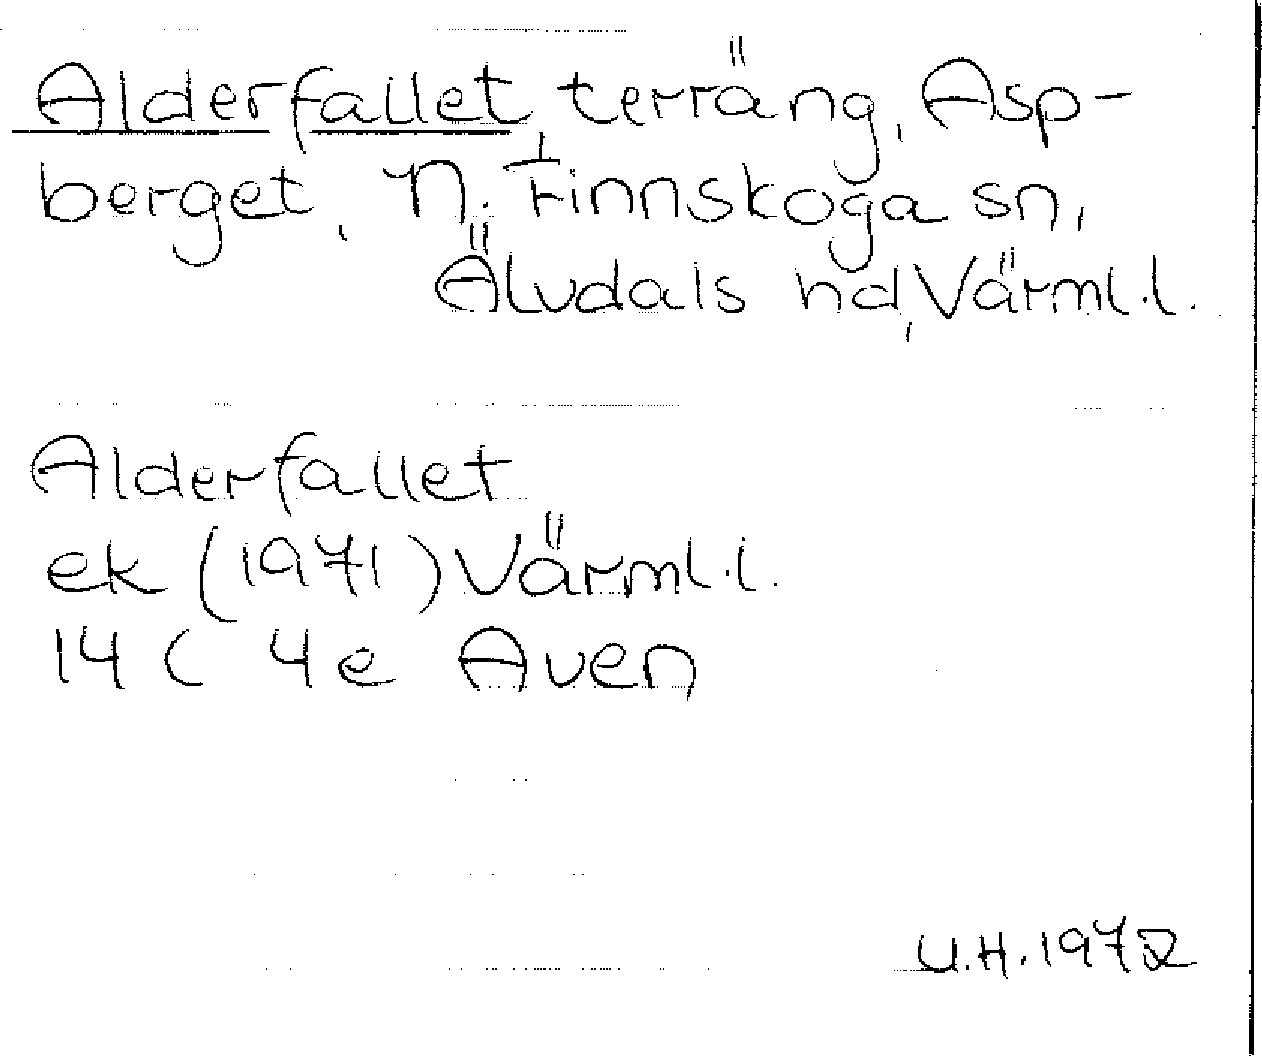 Alderfallet, terräng, Asp-
berget, N. Finnskoga sn,
Älvdals hd, Värml.l.
Alderfallet
ek (1971) Värml.l.
14 C 4e Aven
U.H. 1972